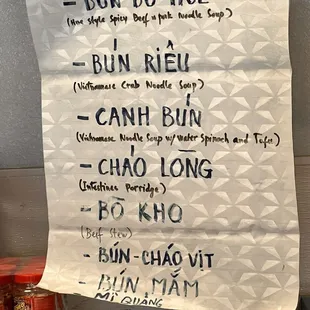 - BÚN BÒ HUẾ
(Hue Style Spicy Beef & pork Noodle Soup)
- BÚN RIÊU
(Vietnamese Crab Noodle Soup)
- CANH BÚN
(Vietnamese Noodle Soup w/ Water Spinach and Tofu)
- CHÁO LÒNG
(Intestines Porridge)
- BÒ KHO
(Beef Stew)
- BÚN - CHÁO VỊT
- BÚN MẮM
MÌ QUẢNG